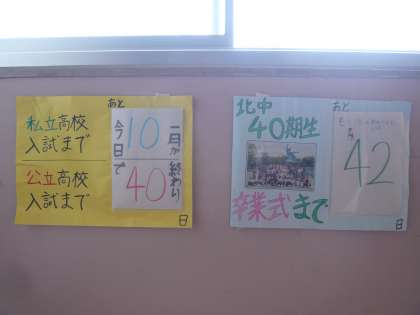 あと
私立高校
入試まで
10
公立高校
入試まで
40
今日で
一日が終わり
日
北中
あと
40期生
42
卒業式まで
日